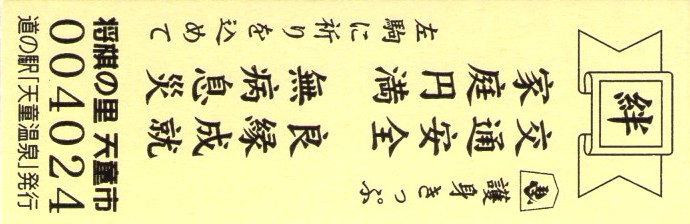 絆
護身きっぷ
交通安全 良縁成就
家庭円満 無病息災
左駒に祈りを込めて
将棋の里 天童市
004024
道の駅「天童温泉」発行